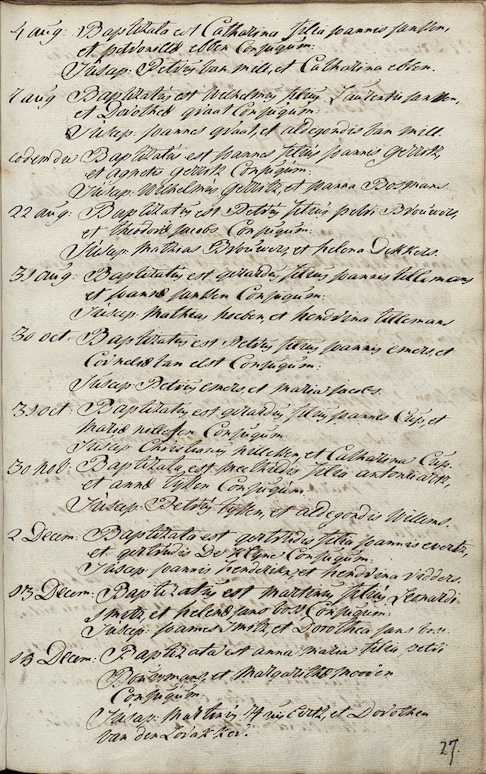 4 aug: Baptizata est Catharina filia joannis janssen,
et petronellæ ebben Conjugum:
Suscep: Petrus van mill, et Catharina ebben.
7 aug Baptizatus est wilhelmus filius Laurentii janssen,
et Dorotheæ graat Conjugum:
Suscep: joannes graat, et aldegondis van mill.
eodem die Baptizatus est joannes filius joannis gerritz,
et agnetis gerritz Conjugum:
Suscep: wilhelmus gerritz, et joanna Bosmans.
22 aug: Baptizatus est Petrus filius petri Brouwers,
et theodora jacobs Conjugum:
Suscep: mathias Brouwers, et helena Dekkers.
31 aug: Baptizatus est gerardus filius joannis tillemans
et joannæ janssen Conjugum:
Suscep: mathias hoeben et hendrina tillemans
30 oct: Baptizatus est Petrus filius joannis emers, et
Corneliæ van elst Conjugum:
Suscep: Petrus emers, et maria jacobs.
31 oct: Baptizatus est gerardus filius joannes Cüp, et
mariæ nelissen Conjugum.
Suscep: Christianus nelissen, et Catharina Cüp.
30 nob: Baptizata est mechtildis filia antonii
et annæ tijssen Conjugum.
Suscep: Petrus tijssen, et aldegondis Willems.
2 Decem: Baptizata est gertrudis filia joannis evertz,
et gertrudis De kleyne Conjugum:
Suscep: joannis hendericks, et hendrina ridders.
13 Decem: Baptizatus est martinus filius Leonardi
smitz, et helenæ jans Conjugum:
Suscep: joannes smitz, et Dorothea jans
13 Decem: Baptizata est anna maria filia petri
et margaritæ
Conjugum.
Suscep: martinus et Dorothea
van den
27.